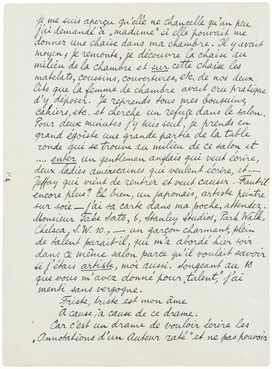 je me suis aperçu qu'elle ne chancelle qu'un peu
j'ai demandé à "madame" si elle pouvait me
donner une chaise dans ma chambre. Il y avait
moyen; je remonte, je découvre la chaise au
milieu de la chambre et sur cette chaise les
matelats, coussins, couvertures, etc. de nos deux
lits que la femme de chambre avait cru pratique
d'y déposer. Je reprends tous mes bouquins,
cahiers, etc. et cherche un refuge dans le salon.
Pour deux minutes j'y suis seul, je prends en
grand égoïste une grande partie de la table
ronde que se trouve au milieu de ce salon et
.... enter un gentleman anglais qui veut écrire,
deux ladies américaines qui veulent écrire, et....
Jeffay qui vient de rentrer et veut causer. Faut-il
encore plus? Eh bien, un japonais, artiste peintre
sur soie — j'ai sa carte dans ma poche, attendez:
Monsieur Take Sato, 6, Stanley Studios, Park Walk,
Chelsea, S.W. 10, — un garçon charmant, plein
de talent paraît-il, qui m'a abordé hier soir
dans ce même salon parce qu'il voulait savoir
si j'étais artiste, moi aussi. Songeant au 10
que vous m'avez donné pour "talent", j'ai
menti sans vergogne.
Triste, triste est mon âme
A cause, à cause de ce drame.
Car c'est un drame de vouloir écrire les
"Annotations d'un Auteur raté" et ne pas pouvoir